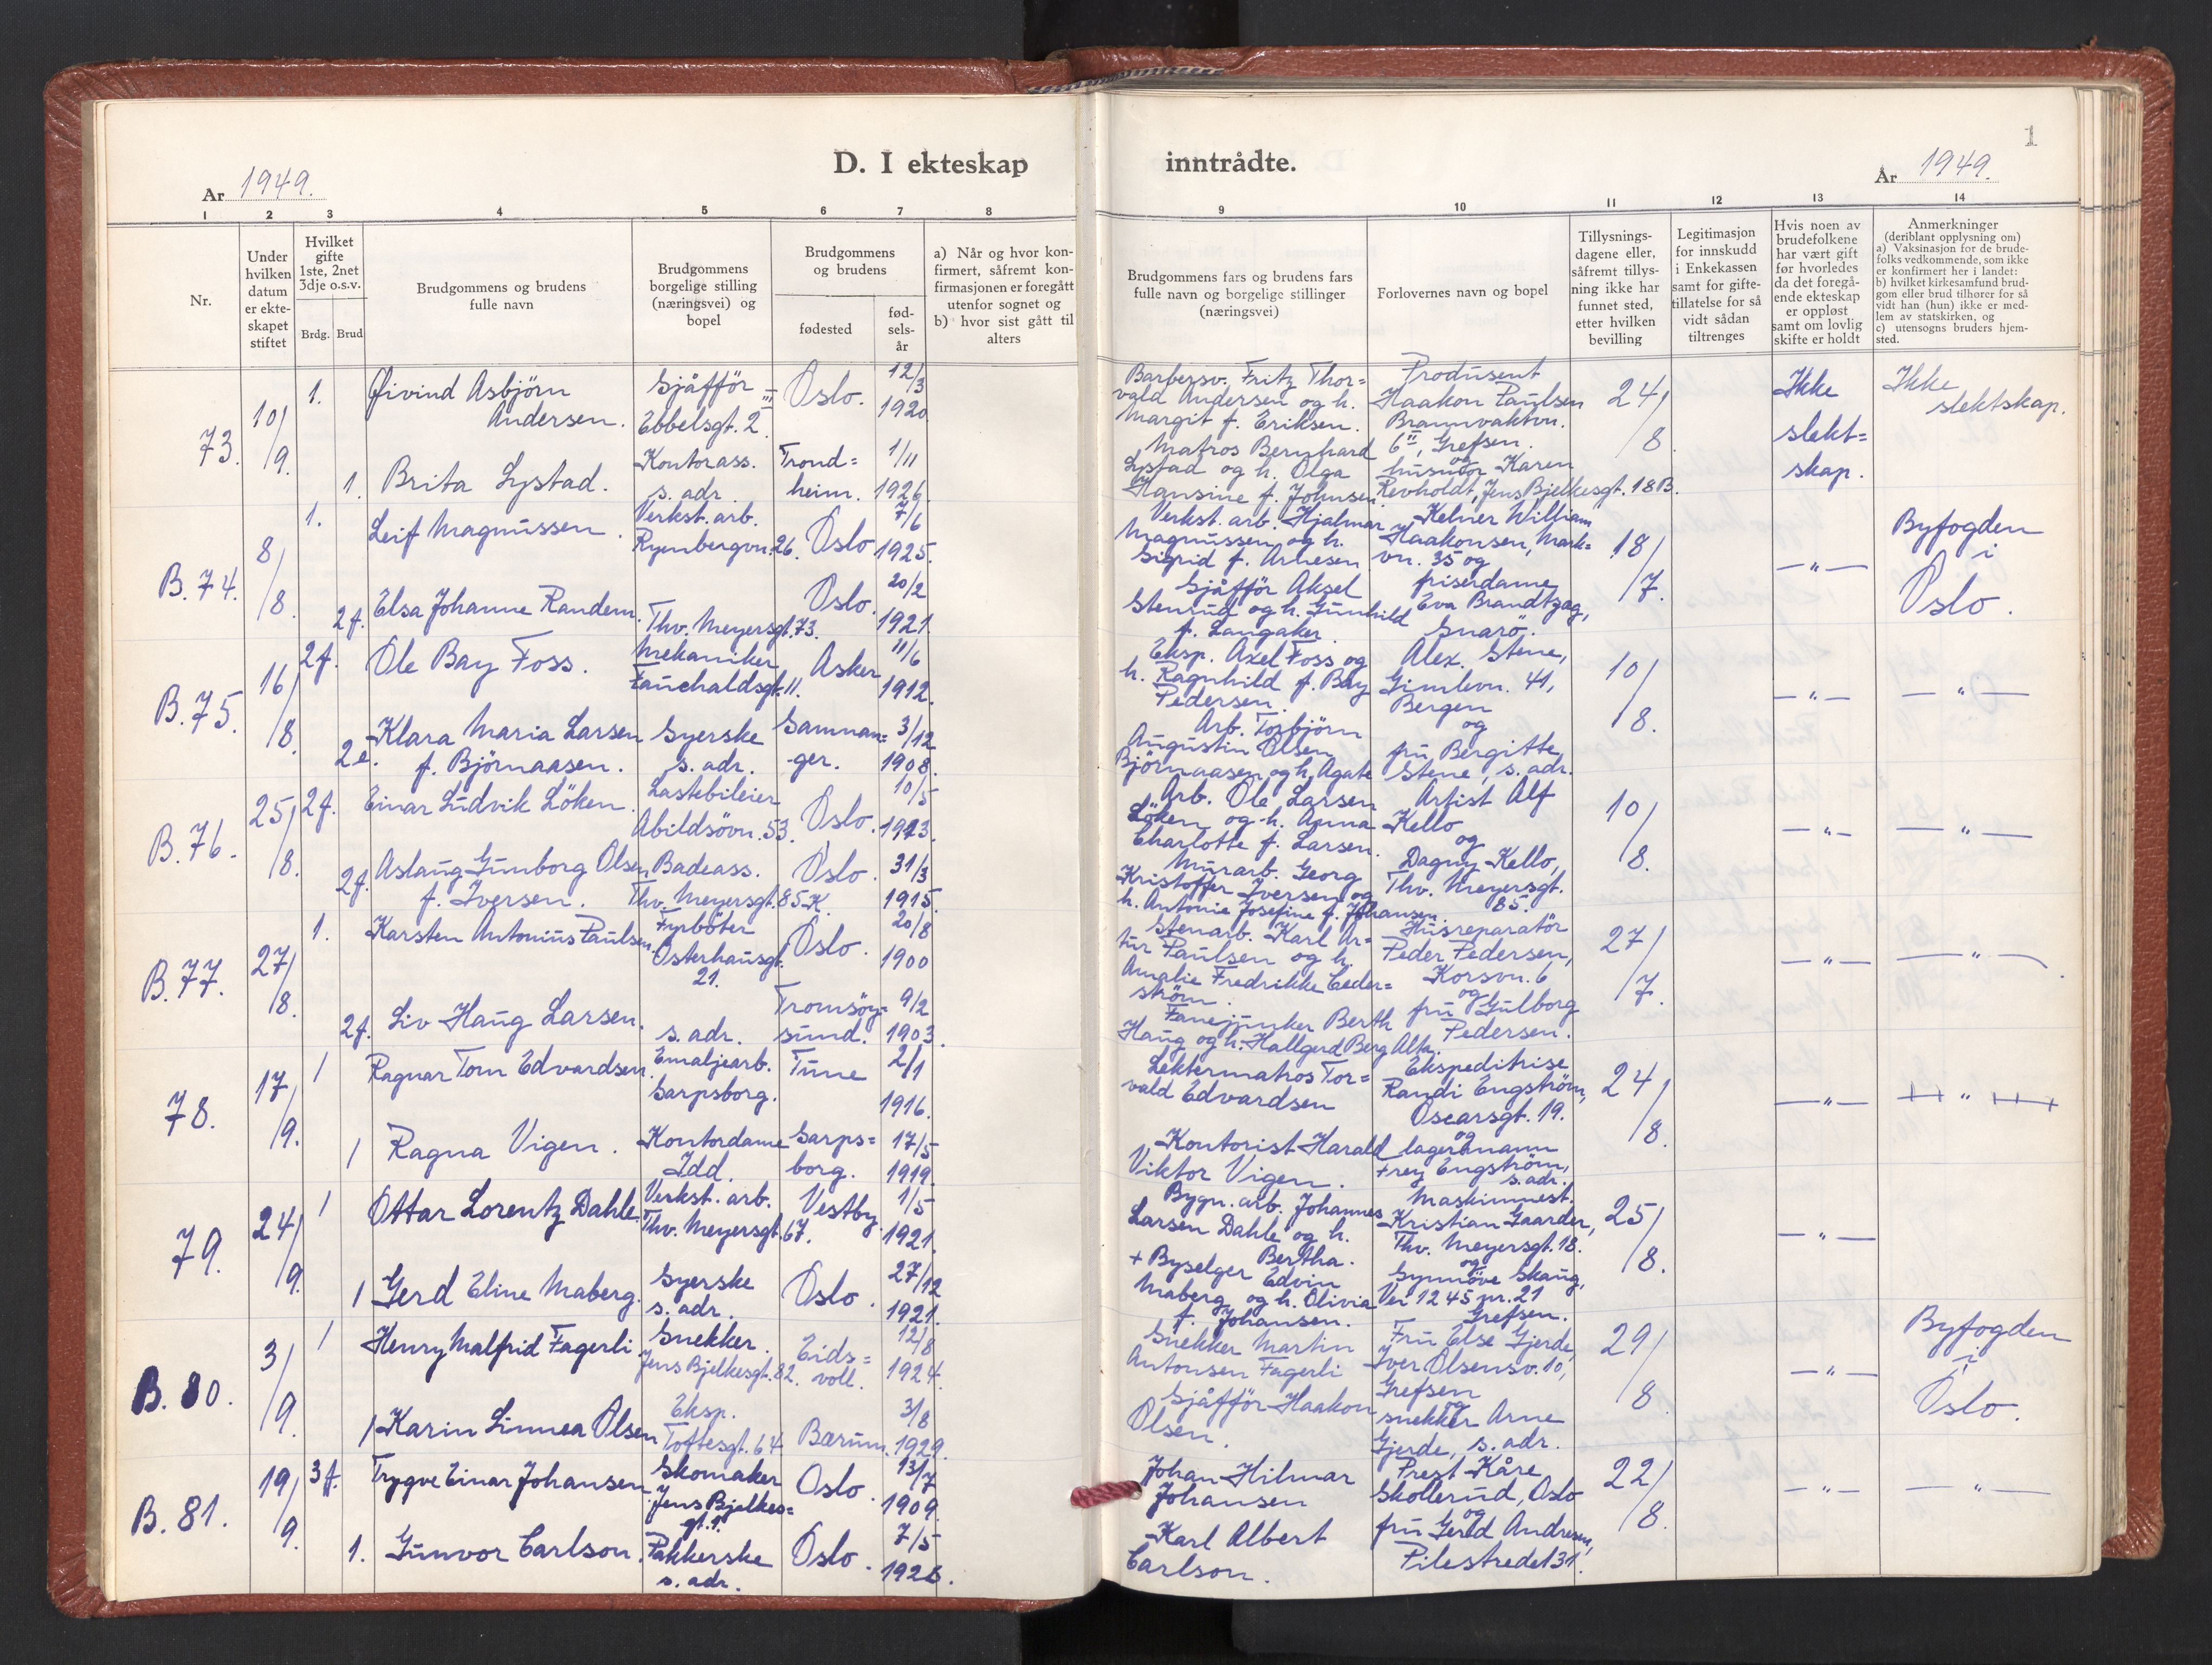 D. I ekteskap
År 1949.
1 2 3 4 5 6 7 8
Nr.
Under
hvilken
datum
er ekte-
skapet
stiftet
Hvilket
gifte
1ste, 2net
3dje o.s.v.
Brdg. Brud
Brudgommens og brudens
fulle navn
Brudgommens
borgelige stilling
(næringsvei) og
bopel
Brudgommens
og brudens
fødested
fød-
sels-
år
a) Når og hvor kon-
firmert, såfremt kon-
firmasjonen er foregått
utenfor sognet og
b) hvor sist gått til
alters
73.
10/9.
1.
Øivind Asbjörn
Andersen.
Sjåfför
Ebbelsgt. 2 III
Oslo.
12/3
1920
1.
Brita Lystad.
Kontorass.
s. adr.
Trond=
heim.
1/11
1926.
B. 74.
8/8.
1.
Leif Magnussen.
Verkst. arb.
Rymbergvn. 26.
Oslo
7/6
1925.
2f.
Elsa Johanne Randem.
Thv. Meyersgt. 73.
Oslo.
20/2
1921.
B. 75.
16/8.
2f.
Ole Bay Foss.
Mekaniker
Fauchaldsgt. 11.
Asker
11/6
1912.
2e.
Klara Maria Larsen
f. Björnaasen.
Syerske
s. adr.
Samnan=
ger.
3/12
1908.
B. 76.
25/8.
2f.
Einar Ludvik Löken.
Lastebileier
Abildsövn. 53.
Oslo.
10/5
1913.
2f.
Aslaug Gunborg Olsen
f. Iversen.
Badeass.
Thv. Meyersgt. 85 K.
Oslo.
31/3
1915.
B. 77.
27/8.
1.
Karsten Antonius Paulsen.
Fyrböter
Osterhausgt.
21.
Oslo.
20/8
1900
2f.
Liv Haug Larsen.
s. adr.
Tromsöy=
sund.
9/2
1903.
78.
17/9.
1
Ragnar Tom Edvardsen.
Emaljearb.
Sarpsborg.
Tune
2/1
1916.
1
Ragna Vigen.
Kontordame
Idd.
Sarps=
borg.
17/5
1919.
79.
24/9.
1
Ottar Lorentz Dahle.
Verkst. arb.
Thv. Meyersgt. 67.
Vestby.
1/5
1921.
1
Gerd Eline Maberg.
Syerske
s. adr.
Oslo.
27/12
1921.
B. 80.
3/9.
1
Henry Malfrid Fagerli
Snekker.
Jens Bjelkesgt. 82.
Eids=
voll.
12/8
1924.
1
Karin Linnea Olsen
Eksp.
Toftesgt. 64
Bærum.
3/8
1929.
B. 81.
19/9.
3f.
Trygve Einar Johansen
Skomaker
Jens Bjelkes=
gt. 1.
Oslo.
13/7
1909.
1.
Gunvor Carlson.
Pakkerske
s. adr.
Oslo.
7/5
1926.
inntrådte.
1
År 1949.
9 10 11 12 13 14
Brudgommens fars og brudens fars
fulle navn og borgelige stillinger
(næringsvei)
Forlovernes navn og bopel
Tillysnings-
dagene eller,
såfremt tillys-
ning ikke har
funnet sted,
etter hvilken
bevilling
Legitimasjon
for innskudd
i Enkekassen
samt for gifte-
tillatelse for så
vidt sådan
tiltrenges
Hvis noen av
brudefolkene
har vært gift
før hvorledes
da det foregå-
ende ekteskap
er oppløst
samt om lovlig
skifte er holdt
Anmerkninger
(deriblant opplysning om)
a) Vaksinasjon for de brude-
folks vedkommende, som ikke
er konfirmert her i landet:
b) hvilket kirkesamfund brud-
gom eller brud tilhører for så
vidt han (hun) ikke er med-
lem av statskirken, og
c) utensogns bruders hjem-
sted.
Barbersv. Fritz Thor=
vald Andersen og h.
Margit f. Eriksen.
Matros Bernhard
Lystad og h. Olga
Hansine f. Johnsen.
Produsent
Haakon Paulsen
Brannvaktvn.
6 II, Grefsen.
og
husmor Karen
Revholdt, Jens Bjelkesgt. 18 B.
24/8.
Ikke
slekt=
skap.
Ikke
slektskap.
Verkst. arb. Hjalmar
Magnussen og h.
Sigrid f. Arnesen
Sjåfför Aksel
Stenrud og h. Gunhild
f. Langaker
Kelner William
Haakonsen, Mark=
vn. 35 og
friserdame
Eva Brandtzæg,
Snarö.
18/7.
— " —
Byfogden
i
Oslo.
Eksp. Axel Foss og
h. Ragnhild f. Bay
Pedersen.
Arb. Torbjörn
Augustin Olsen
Björnaasen og h. Agate
Alex. Stene,
Gimlevn. 41,
Bergen
og
fru Bergitte
Stene, s. adr.
10/8.
— " —
— " —
Arb. Ole Larsen
Löken og h. Anna
Charlotte f. Larsen.
Murarb. Georg
Kristoffer Iversen og
h. Antonie Josefine f. Johansen.
Artist Alf
Kello
og
Dagny Kello,
Thv. Meyersgt.
85.
10/8.
— " —
— " —
Stenarb. Karl Ar=
tur Paulsen og h.
Amalie Fredrikke Ceder=
ström.
Fanejunker Berth
Haug og h. Hallgerd Berg Alta.
Husreparatör
Peder Pedersen,
Korsvn. 6
og
fru Gulborg
Pedersen.
27/7.
— " —
— " —
Lektermatros Tor=
vald Edvardsen
Kontorist Harald
Viktor Vigen.
Ekspeditrise
Randi Engström,
Oscarsgt. 19.
og
lagermann
Frey Engström,
s. adr.
24/8.
— " —
— " —
Bygn. arb. Johannes
Larsen Dahle og h.
Bertha.
+ Byselger Edvin
Maberg og h. Olivia
f. Johansen.
Maskinmest.
Kristian Gaarder,
Thv. Meyersgt. 18.
og
Synnöve Skaug,
Vei 1245 nr. 21
Grefsen.
25/8.
— " —
Snekker Martin
Antonsen Fagerli
Sjåfför Haakon
Olsen.
Fru Else Gjerde,
Iver Olsensv. 10,
Grefsen
og
snekker Arne
Gjerde, s. adr.
29/8
— " —
Byfogden
i
Oslo.
Johan Hilmar
Johansen
Karl Albert
Carlson.
Prest Kåre
Skollerud, Oslo
og
fru Gerd Andresen,
Pilestredet 31.
22/8.
— " —
— " —